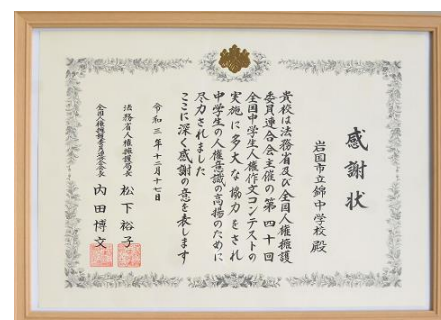 感謝状
岩国市立錦中学校殿
貴校は法務省及び全国人権擁護
委員連合会主催の第四十回
全国中学生人権作文コンテストの
実施に多大な協力をされ
中学生の人権意識の高揚のために
尽力されました
ここに深く感謝の意を表します
令和三年十二月十七日
法務省人権擁護局長 松下裕子
全国人権擁護委員連合会長 内田博文